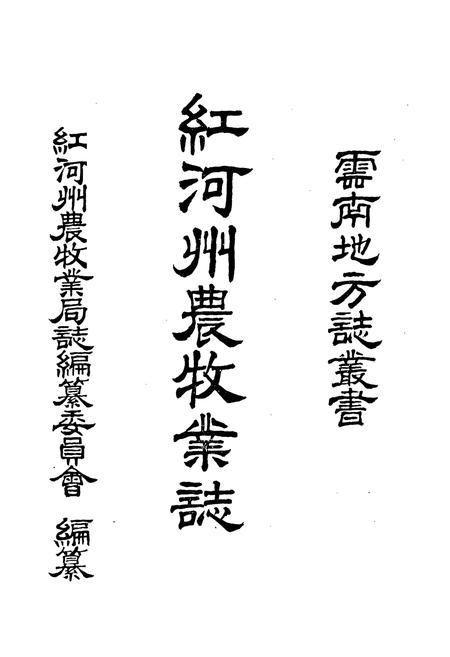 雲南地方誌叢書
紅河州農牧業誌
紅河州農牧業局誌編纂委員會 編纂